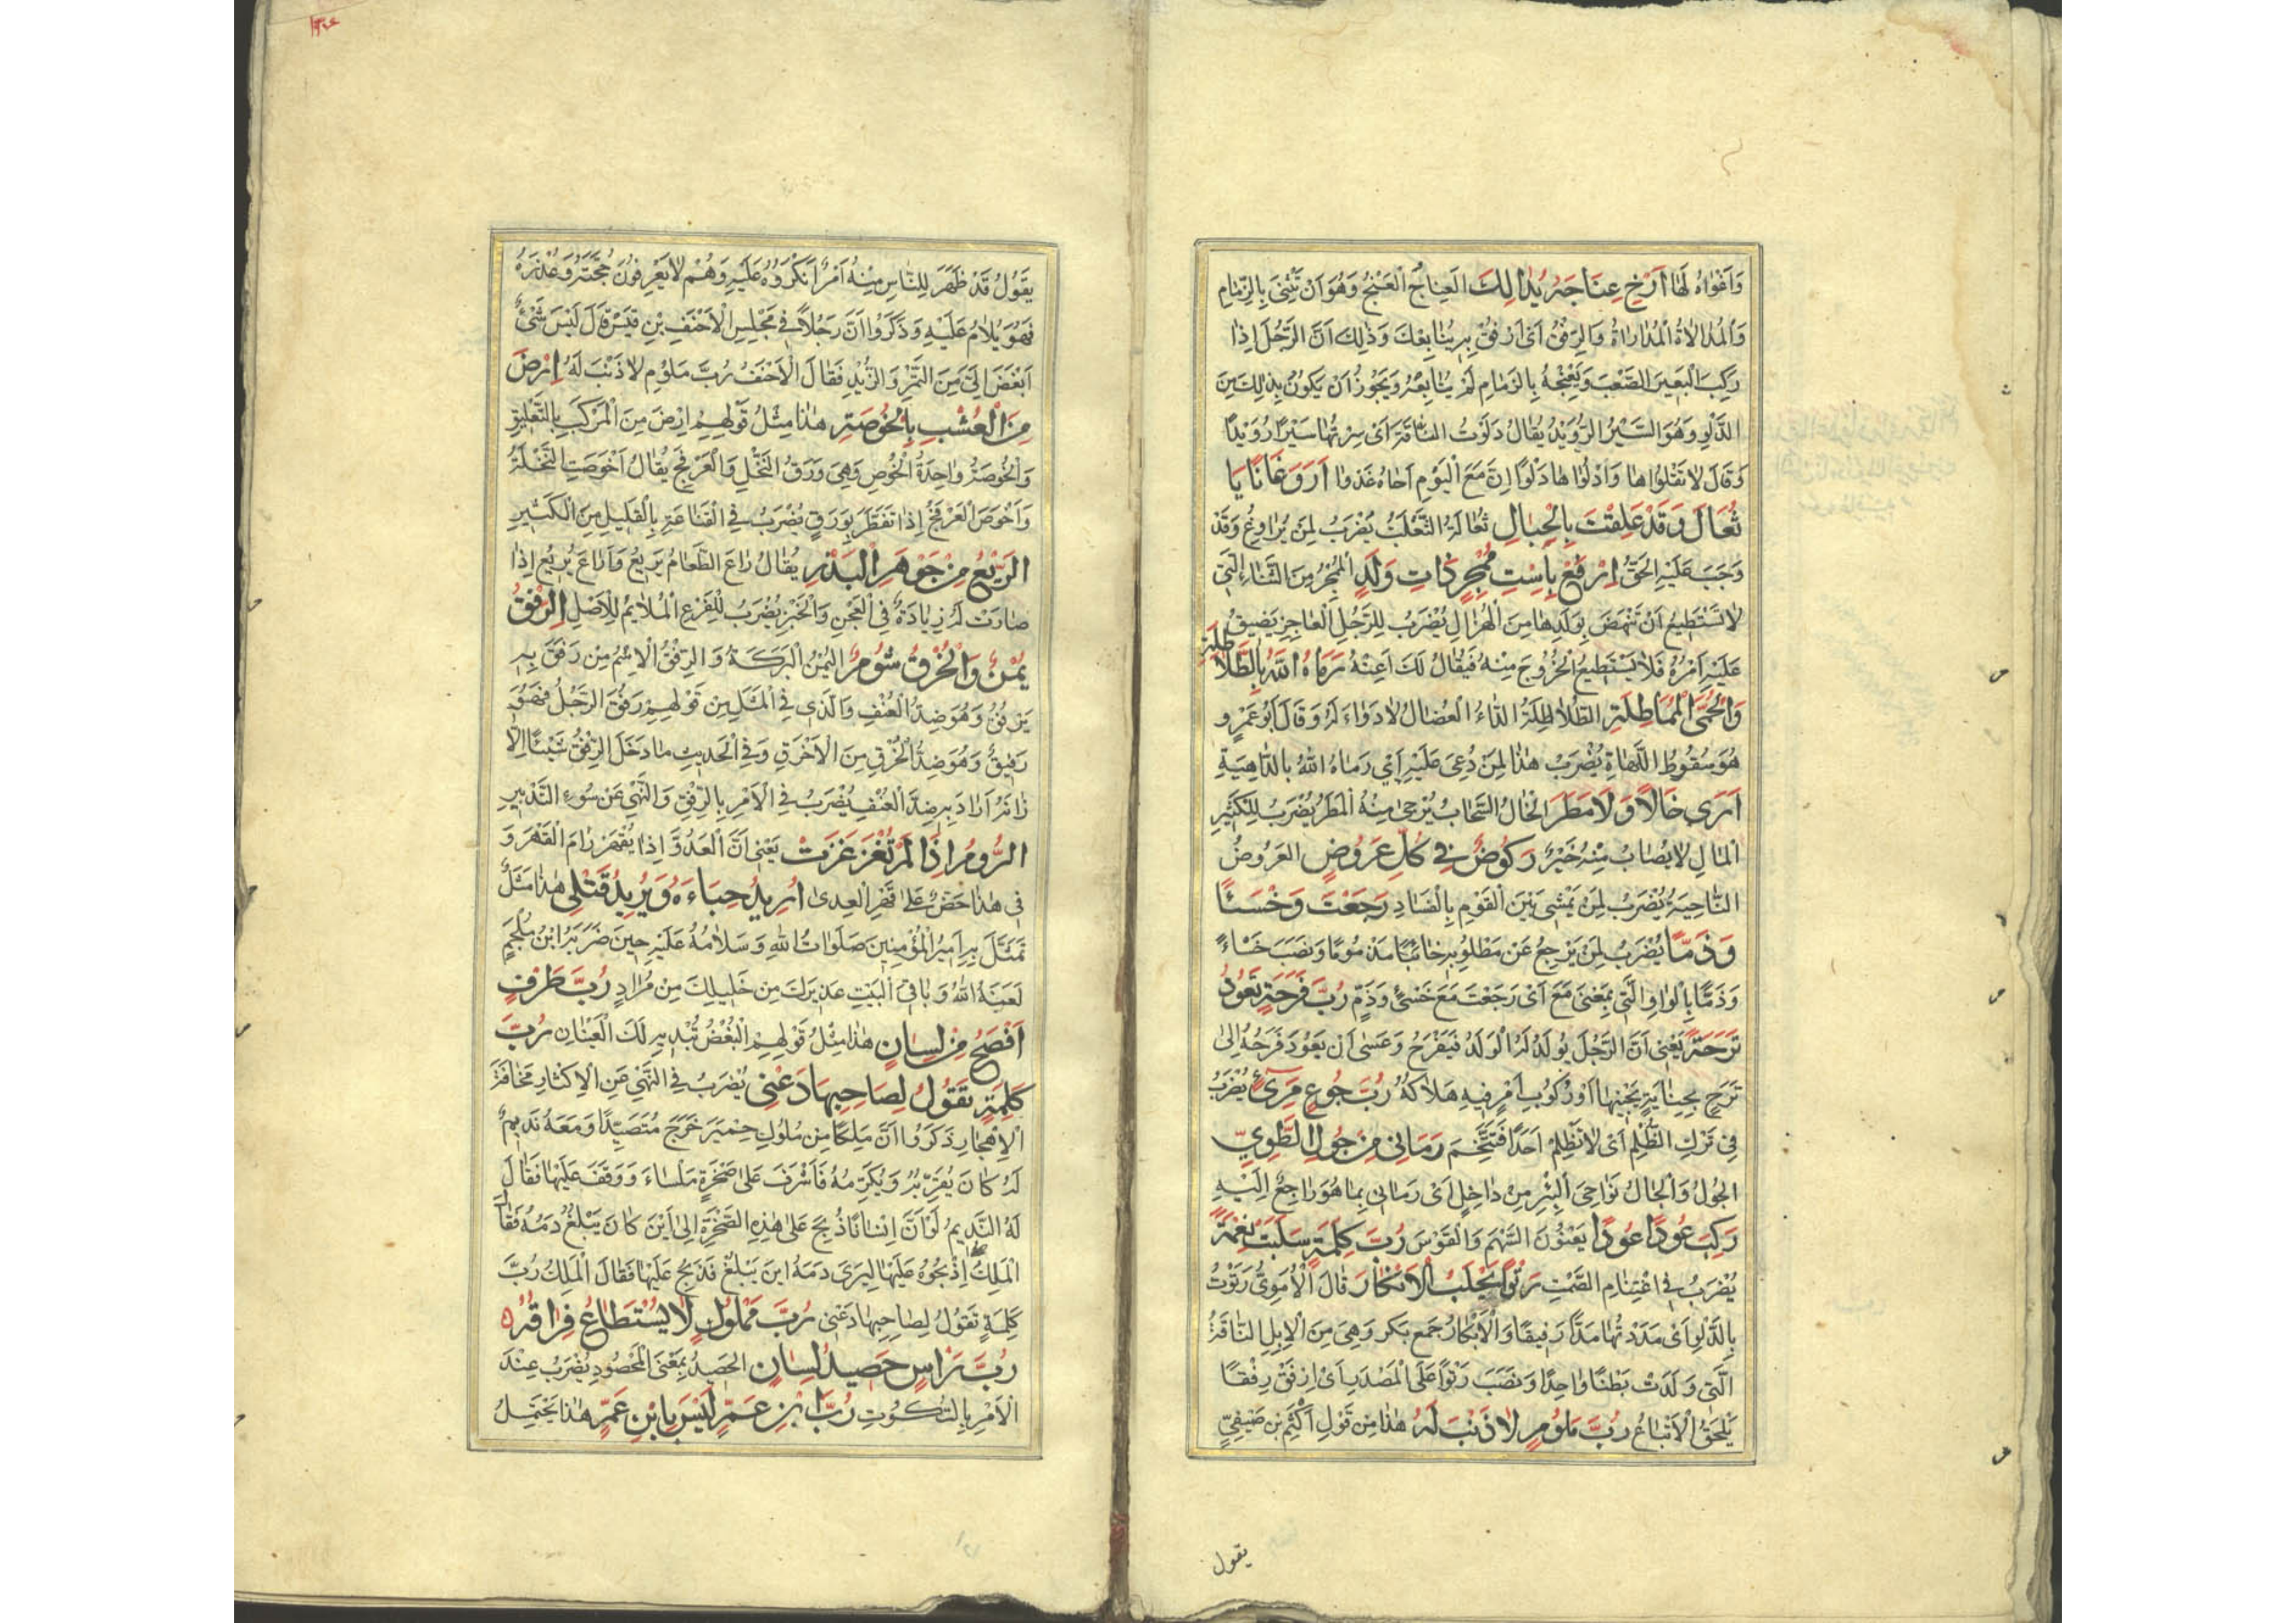 وَاَفْوَاهُ لَهَا اَرْخِ عِنَاجَهُ يُدَالِكَ العِنَاجُ الْعَنْجُ وَهُوَ اَنْ تَثْنِىَ بِالزِّمَامِ
وَالْمُدَالَاةُ الْمُدَارَاةُ وَالرِّفْقُ اَىْ اُرْفُقْ بِهِ يُتَابِعْكَ وَذٰلِكَ اَنَّ الرَّجُلَ اِذَا
رَكِبَ الْبَعِيرَ الصَّعْبَ وَيَعْنِجُهُ بِالزِّمَامِ لَمْ يُتَابِعْهُ وَيَجُوزُ اَنْ يَكُونَ يُدَالِكَ مِنَ
الدَّلْوِ وَهُوَ السَّيْرُ الرُّوَيْدُ يُقَالُ دَلَوْتُ النَّاقَةَ اَىْ سِرْتُهَا سَيْرًا رُوَيْدًا
وَقَالَ لَا تَقْلُوَاهَا وَادْلُوَاهَا دَلْوًا اِنَّ مَعَ الْيَوْمِ اَخَاهُ غَدْوًا اَرَوَغَانًا يَا
ثُعَالَ وَقَدْ عَلِقْتَ بِالْحِبَالِ ثُعَالَةُ الثَّعْلَبُ يُضْرَبُ لِمَنْ يُرَاوِغُ وَقَدْ
وَجَبَ عَلَيْهِ الْحَقُّ اِرْفَعْ بِاسْتِ مُمْجِرٍ ذَاتِ وَلَدٍ الْمُمْجِرُ مِنَ الشَّاءِ الَّتِى
لَا تَسْتَطِيعُ اَنْ تَنْهَضَ بِوَلَدِهَا مِنَ الْهُزَالِ يُضْرَبُ لِلرَّجُلِ الْعَاجِزِ يَضِيقُ
عَلَيْهِ اَمْرُهُ فَلَا يَسْتَطِيعُ الْخُرُوجَ مِنْهُ فَيُقَالُ لَكَ اَعِنْهُ رَمَاهُ اللّٰهُ بِالطُّلَاطِلَةِ
وَالْحُمَّى الْمُمَاطِلَةِ الطُّلَاطِلَةُ الدَّاءُ الْعُضَالُ لَا دَوَاءَ لَهُ وَقَالَ اَبُو عَمْرٍو
هُوَ سُقُوطُ اللَّهَاةِ يُضْرَبُ هٰذَا لِمَنْ دُعِىَ عَلَيْهِ اَىْ رَمَاهُ اللّٰهُ بِالدَّاهِيَةِ
اَرَى خَالًا وَلَا مَطَرَ الْخَالُ السَّحَابُ يُرْجَى مِنْهُ الْمَطَرُ يُضْرَبُ لِلْكَثِيرِ
الْمَالِ لَا يُصَابُ مِنْهُ خَيْرٌ رَكُوضٌ فِى كُلِّ عَرُوضٍ العَرُوضُ
النَّاحِيَةُ يُضْرَبُ لِمَنْ يَمْشِى بَيْنَ الْقَوْمِ بِالْفَسَادِ رَجَعْتَ وَخَسْئًا
وَذَمًّا يُضْرَبُ لِمَنْ يَرْجِعُ عَنْ مَطْلُوبِهِ خَائِبًا مَذْمُومًا وَنَصَبَ خَسْاءً
وَذَمًّا بِالْوَاوِ الَّتِى بِمَعْنَى مَعَ اَىْ رَجَعْتَ مَعَ خَسْئٍ وَذَمٍّ رُبَّ فَرْحَةٍ تَعُودُ
تَرْحَةً يَعْنِى اَنَّ الرَّجُلَ يُولَدُ لَهُ الْوَلَدُ فَيَفْرَحُ وَعَسٰى اَنْ يَعُودَ فَرَحُهُ اِلىٰ
تَرَحٍ بِجِنَايَةٍ يَجْنِيهَا اَوْ رُكُوبِ اَمْرٍ فِيهِ هَلَاكُهُ رُبَّ جُوعٍ مَرِئٍ يُضْرَبُ
فِى تَرْكِ الظُّلْمِ اَىْ لَا تَظْلِمْ اَحَدًا فَتَتَّخِمَ رَمَانِى مِنْ جُولِ الطَّوِىِّ
الجُولُ وَالْجَالُ نَوَاحِىَ الْبِئْرِ مِنْ دَاخِلٍ اَىْ رَمَانِى بِمَا هُوَ رَاجِعٌ اِلَيْهِ
رَكِبَ عُودًا عُودًا يَعْنُونَ السَّهْمَ وَالْقَوْسَ رُبَّ كَلِمَةٍ سَلَبَتْ نِعْمَةً
يُضْرَبُ فِى اغْتِنَامِ الصَّمْتِ رَتْوًا يُحْلَبُ الْاَبْكَارُ قَالَ الْاُمَوِىُّ رَتَوْتُ
بِالدَّلْوِ اَىْ مَدَدْتُهَا مَدًّا رَفِيقًا وَالْاَبْكَارُ جَمْعُ بَكْرٍ وَهِىَ مِنَ الْاِبِلِ النَّاقَةُ
الَّتِى وَلَدَتْ بَطْنًا وَاحِدًا وَنَصَبَ رَتْوًا عَلَى الْمَصْدَرِ اَىْ اِرْفَقْ رِفْقًا
يَلْحَقُ الْاَتْبَاعُ رُبَّ مَلُومٍ لَا ذَنْبَ لَهُ هٰذَا مِنْ قَوْلِ اَكْثَمَ بْنِ صَيْفِىٍّ
يقول
يَقُولُ قَدْ ظَهَرَ لِلنَّاسِ مِنْهُ اَمْرٌ اَنْكَرُوهُ عَلَيْهِ وَهُمْ لَا يَعْرِفُونَ حُجَّتَهُ وَعُذْرَهُ
فَهُوَ يُلَامُ عَلَيْهِ وَذَكَرُوا اَنَّ رَجُلًا فِى مَجْلِسِ الْاَحْنَفِ بْنِ قَيْسٍ قَالَ لَيْسَ شَىْءٌ
اَبْغَضَ اِلَىَّ مِنَ التَّمْرِ وَالزُّبْدِ فَقَالَ الْاَحْنَفُ رُبَّ مَلُومٍ لَا ذَنْبَ لَهُ اِرْضَ
مِنَ الْعُشْبِ بِالْخُوصَةِ هٰذَا مِثْلُ قَوْلِهِمْ اِرْضَ مِنَ الْمَرْكَبِ بِالتَّعْلِيقِ
وَالْخُوصَةُ وَاحِدَةُ الْخُوصِ وَهِىَ وَرَقُ النَّخْلِ وَالْعَرْفَجِ يُقَالُ اَخْوَصَتِ النَّخْلَةُ
وَاَخْوَصَ الْعَرْفَجُ اِذَا تَفَطَّرَ بِوَرَقٍ يُضْرَبُ فِى الْقَنَاعَةِ بِالْقَلِيلِ مِنَ الْكَثِيرِ
الرَّيْعُ مِنْ جَوْهَرِ الْبَذْرِ يُقَالُ رَاعَ الطَّعَامُ يَرِيعُ وَاَرَاعَ يُرِيعُ اِذَا
صَارَتْ لَهُ زِيَادَةٌ فِى الْعَجْنِ وَالْخَبْزِ يُضْرَبُ لِلْفَرْعِ الْمُلَايِمِ لِلْاَصْلِ اَلرِّفْقُ
يُمْنٌ وَالْخُرْقُ شُومٌ اليُمْنُ الْبَرَكَةُ وَالرِّفْقُ الْاِسْمُ مِنْ رَفَقَ بِهِ
يَرْفُقُ وَهُوَ ضِدُّ الْعُنْفِ وَالَّذِى فِى الْمَثَلِ مِنْ قَوْلِهِمْ رَفُقَ الرَّجُلُ فَهُوَ
رَفِيقٌ وَهُوَ ضِدُّ الْخُرْقِ مِنَ الْاَخْرَقِ وَفِى الْحَدِيثِ مَا دَخَلَ الرِّفْقُ شَيْئًا اِلَّا
زَانَهُ اَرَادَ بِهِ ضِدَّ الْعُنْفِ يُضْرَبُ فِى الْاَمْرِ بِالرِّفْقِ وَالنَّهْىِ عَنْ سُوءِ التَّدْبِيرِ
الرُّومُ اِذَا لَمْ تُغْزَ غَزَتْ يَعْنِى اَنَّ الْعَدُوَّ اِذَا لَمْ يُقْهَرْ رَامَ الْقَهْرَ وَ
فِى هٰذَا حَضٌّ عَلىٰ قَهْرِ الْعِدىٰ اُرِيدُ حِبَاءَهُ وَيُرِيدُ قَتْلِى هٰذَا مَثَلٌ
تَمَثَّلَ بِهِ اَمِيرُ الْمُؤْمِنِينَ صَلَوَاتُ اللّٰهِ وَسَلَامُهُ عَلَيْهِ حِينَ ضَرَبَهُ ابْنُ مُلْجَمٍ
لَعَنَهُ اللّٰهُ وَبَاقِىَ الْبَيْتِ عَذِيرَكَ مِنْ خَلِيلِكَ مِنْ مُرَادٍ رُبَّ طَرْفٍ
اَفْصَحُ مِنْ لِسَانٍ هٰذَا مِثْلُ قَوْلِهِمْ الْبُغْضُ تُبْدِيهِ لَكَ الْعَيْنَانِ رُبَّ
كَلِمَةٍ تَقُولُ لِصَاحِبِهَا دَعْنِى يُضْرَبُ فِى النَّهْىِ عَنِ الْاِكْثَارِ مَخَافَةَ
الْاِهْجَارِ ذَكَرُوا اَنَّ مَلِكًا مِنْ مُلُوكِ حِمْيَرَ خَرَجَ مُتَصَيِّدًا وَمَعَهُ نَدِيمٌ
لَهُ كَانَ يُقَرِّبُهُ وَيُكْرِمُهُ فَاَشْرَفَ عَلىٰ صَخْرَةٍ مَلْسَاءَ وَوَقَفَ عَلَيْهَا فَقَالَ
لَهُ النَّدِيمُ لَوْ اَنَّ اِنْسَانًا ذُبِحَ عَلىٰ هٰذِهِ الصَّخْرَةِ اِلىٰ اَيْنَ كَانَ يَبْلُغُ دَمُهُ فَقَالَ
الْمَلِكُ اِذْبَحُوهُ عَلَيْهَا لِيَرَى دَمَهُ اَيْنَ يَبْلُغُ فَذُبِحَ عَلَيْهَا فَقَالَ الْمَلِكُ رُبَّ
كَلِمَةٍ تَقُولُ لِصَاحِبِهَا دَعْنِى رُبَّ مَمْلُولٍ لَا يُسْتَطَاعُ فِرَاقُهُ
رُبَّ رَاْسٍ حَصِيدُ لِسَانٍ الحَصِيدُ بِمَعْنَى الْمَحْصُودِ يُضْرَبُ عِنْدَ
الْاَمْرِ بِالسُّكُوتِ رُبَّ ابْنِ عَمٍّ لَيْسَ بِابْنِ عَمٍّ هٰذَا يَحْتَمِلُ